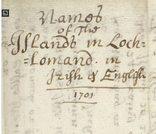 Names
of The
Islands in Loch=
=Lomand. in
Irish & English
1701